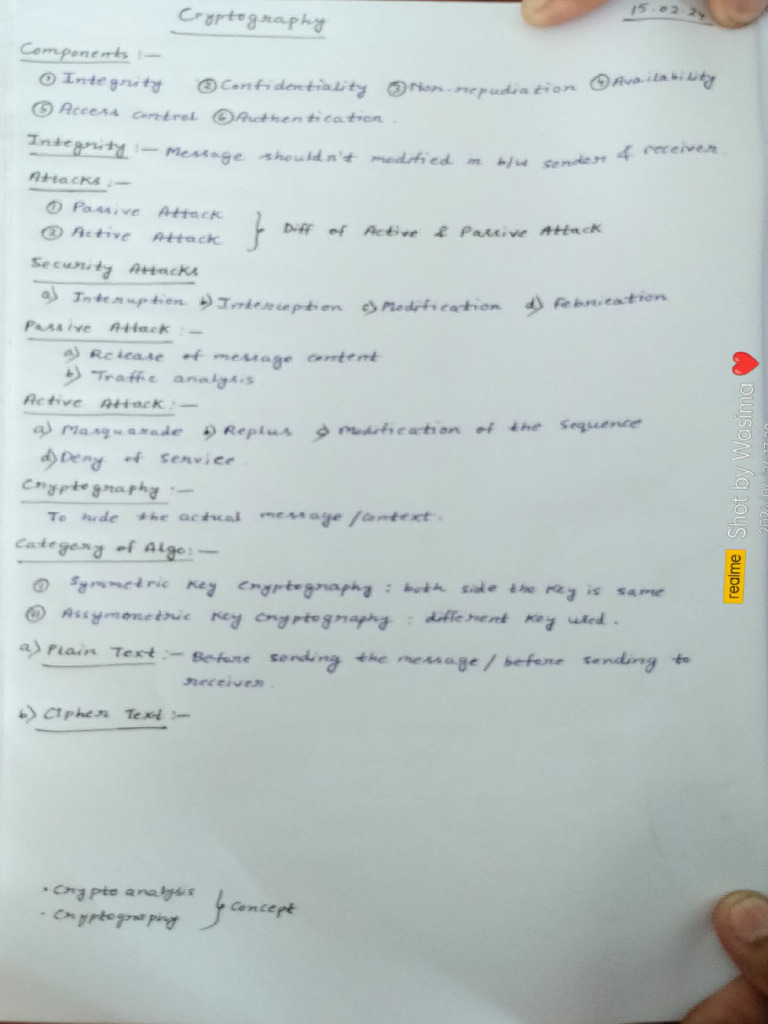 Cryptography
15.02.24
Components :-
① Integrity ② Confidentiality ③ Non-repudiation ④ Availability
⑤ Access control ⑥ Authentication.
Integrity :- Message shouldn't modified in b/w sender & receiver.
Attacks :-
① Passive Attack
② Active Attack
} Diff of Active & Passive Attack
Security Attacks
a) Interuption b) Interception c) Modification d) Febrication
Passive Attack :-
a) Release of message content
b) Traffic analysis
Active Attack :-
a) Masquarade b) Replus c) Modification of the sequence
d) Deny of service
Cryptography :-
To hide the actual message / context.
Category of Algo :-
① Symmetric Key Cryptography : both side the key is same
② Assymmetric Key Cryptography : different key used.
a) Plain Text :- Before sending the message / before sending to
receiver.
b) Cipher Text :-
• Crypto analysis
• Cryptography
} Concept
realme Shot by Wasima ❤